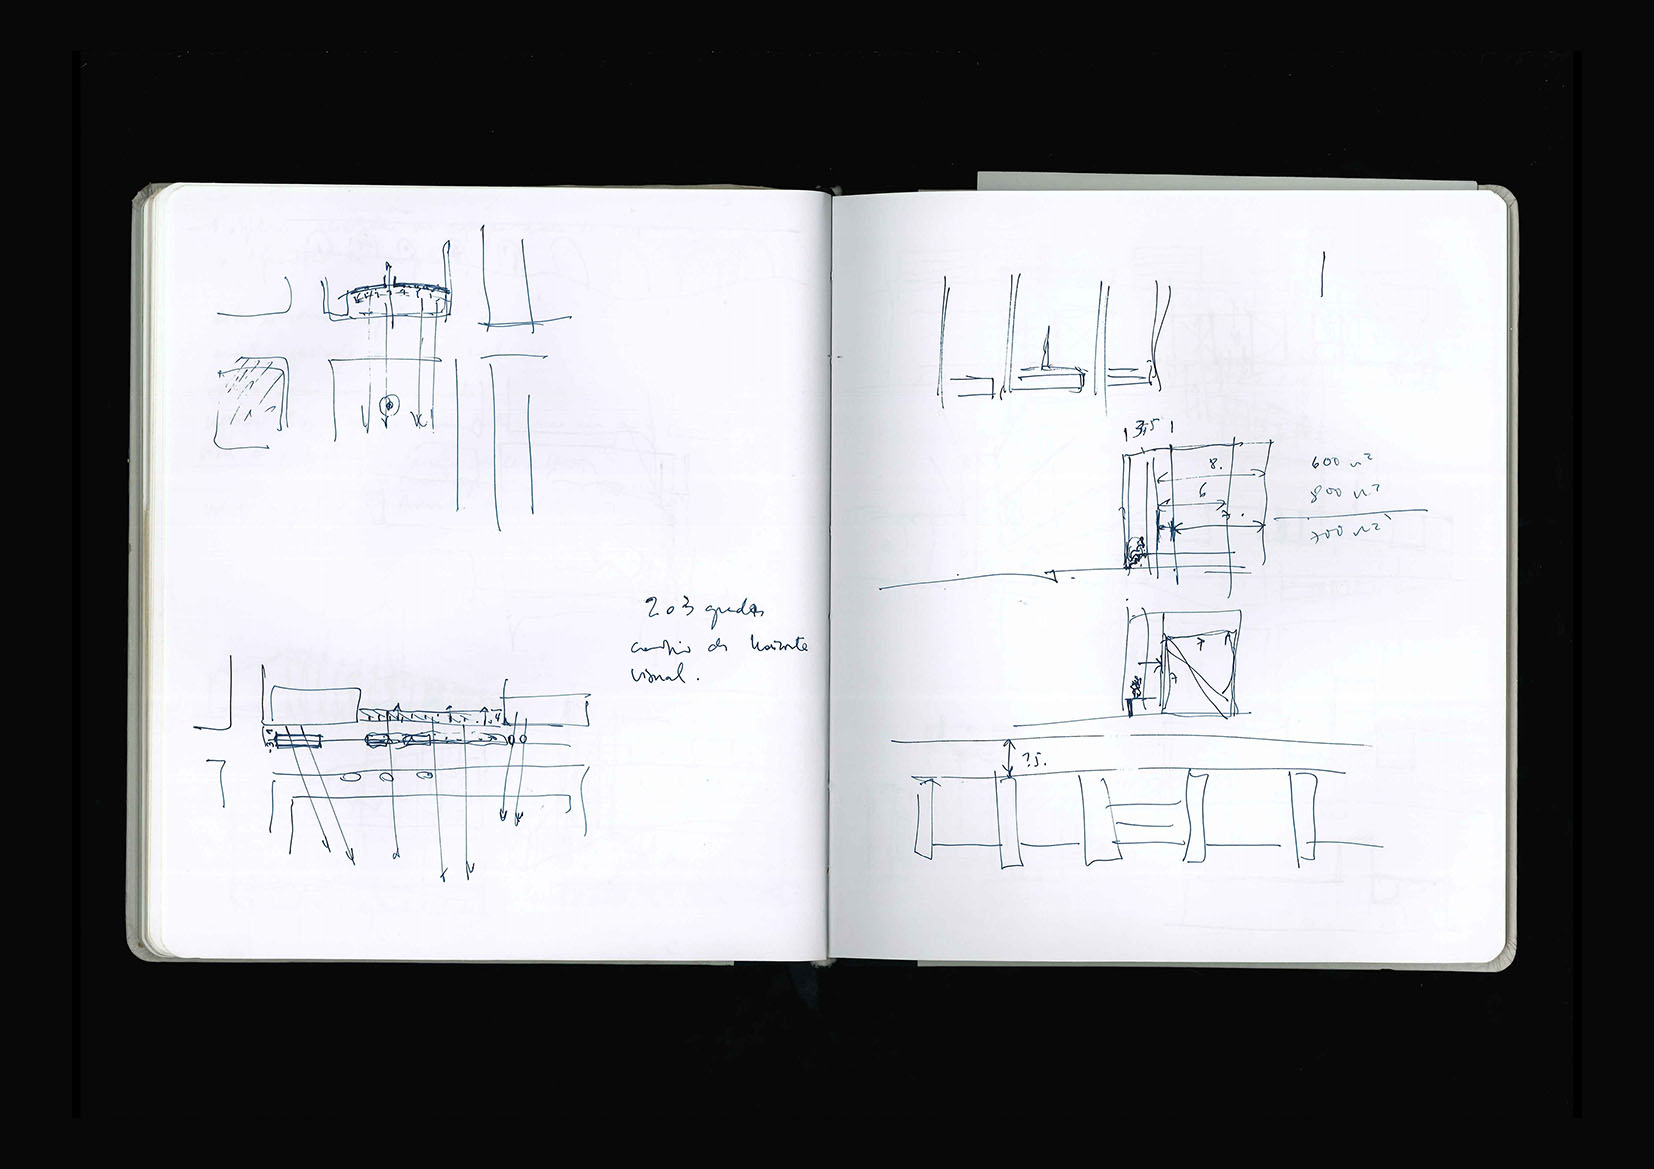 2 o 3 gradas
cambio de horizonte
visual.
3,5
8.
6
7.
600 m²
800 m²
700 m²
7
7
3.5.